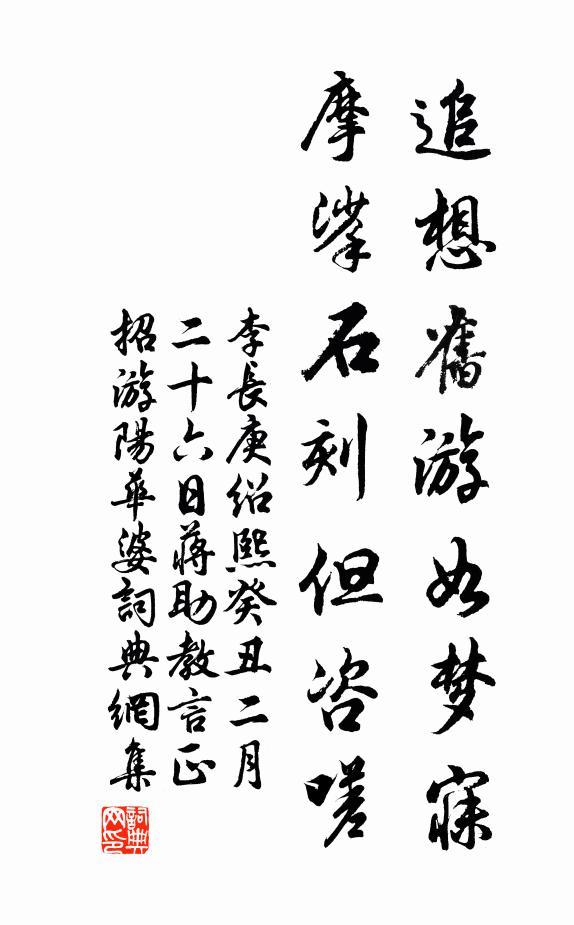 追想舊游如梦寐
摩挲石刻但咨嗟
李長庚紹熙癸丑二月
二十六日蔣助教言正
招游陽華婆詞典網集
詞典网印